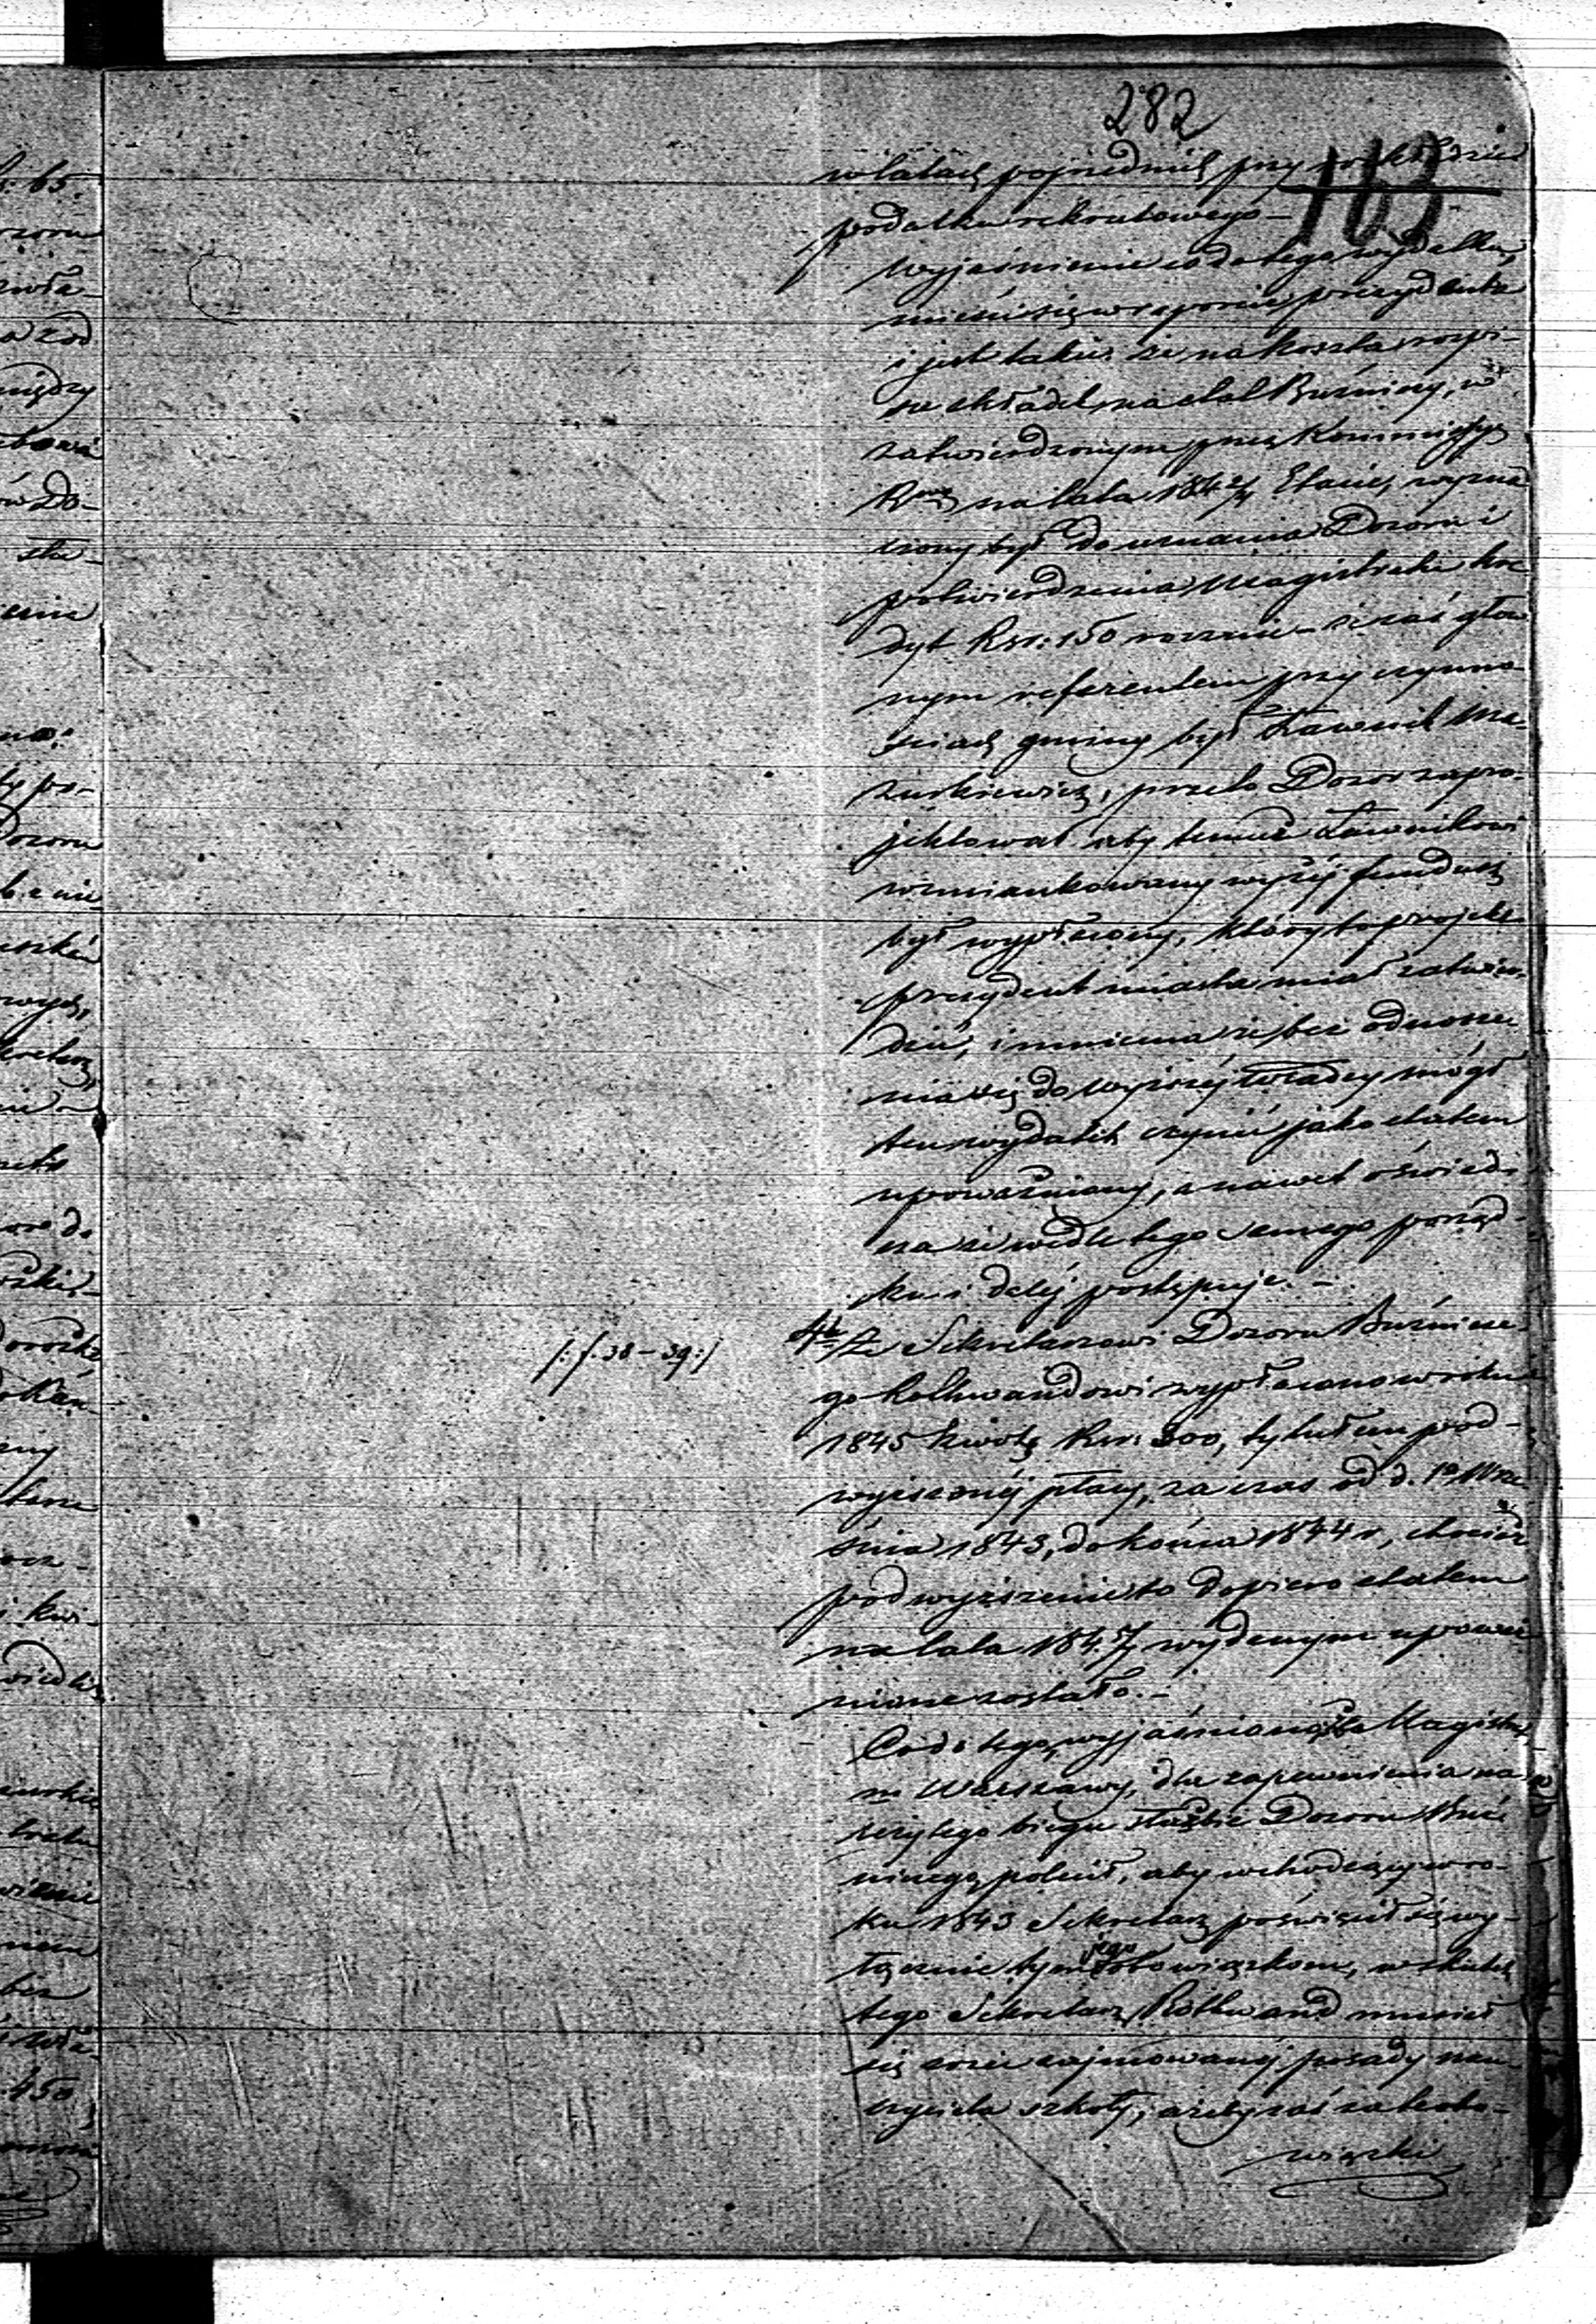 282
163
w latach pojrednich przy rozkładzie
podatku rekrutowego –
Wyjaśnienie co do tego wydatku,
mieści się w raporcie prezydenta
i jest takie: że na koszta rozpi-
su składek, na etat Bużniczy, w
zatwierdzonym przez Kommissyę
Rową na lata 184 2/4 Etacie, wyzna
czony był do uznania Dozoru i
potwierdzenia Magistratu kre
dyt Rsr: 150 rocznie – że zaś głów
nym referentem przy czynno-
ściach gminy był Ławnik Ma-
zurkiewicz, przeto Dozór zapro-
jektował aby temuż Ławnikowi
wzmiankowany wyżéj fundusz
był wypłacony, który to projekt
prezydent miasta miał zatwier-
dzić, i mniema że bez odnosze-
nia się do wyższéj Władzy mógł
ten wydatek czynić jako etatem
upoważniony, a nawet oświad-
cza że wedle tego samego porząd-
ku i daléj postępuje. –
/: f. 38 – 39 :/
4te Że Sekretarzowi Dozoru Bużnicze-
go Rothwandowi wypłacono w roku
1845 kwotę Rsr: 300, tytułem pod-
wyższonéj płacy, za czas od d. 1o Wrze
śnia 1843, do końca 1844 r, chociaż
podwyższenie to dopiero etatem
na lata 184 5/7 wydanym upoważ
nione zostało. –
Co do tego, wyjaśniono że Magistrat
m Warszawy, dla zapewnienia na
leżytego biegu służbie Dozoru Buż
niczego, polecił, aby wchodzący w ro-
ku 1843 Sekretarz poświęcił się wy-
łącznie tym jego obowiązkom, w skutek
tego Sekretarz Rothwand musiał
się zrzec zajmowanéj posady nau-
czyciela szkoły, ażeby zaś za te obo-
wiązki